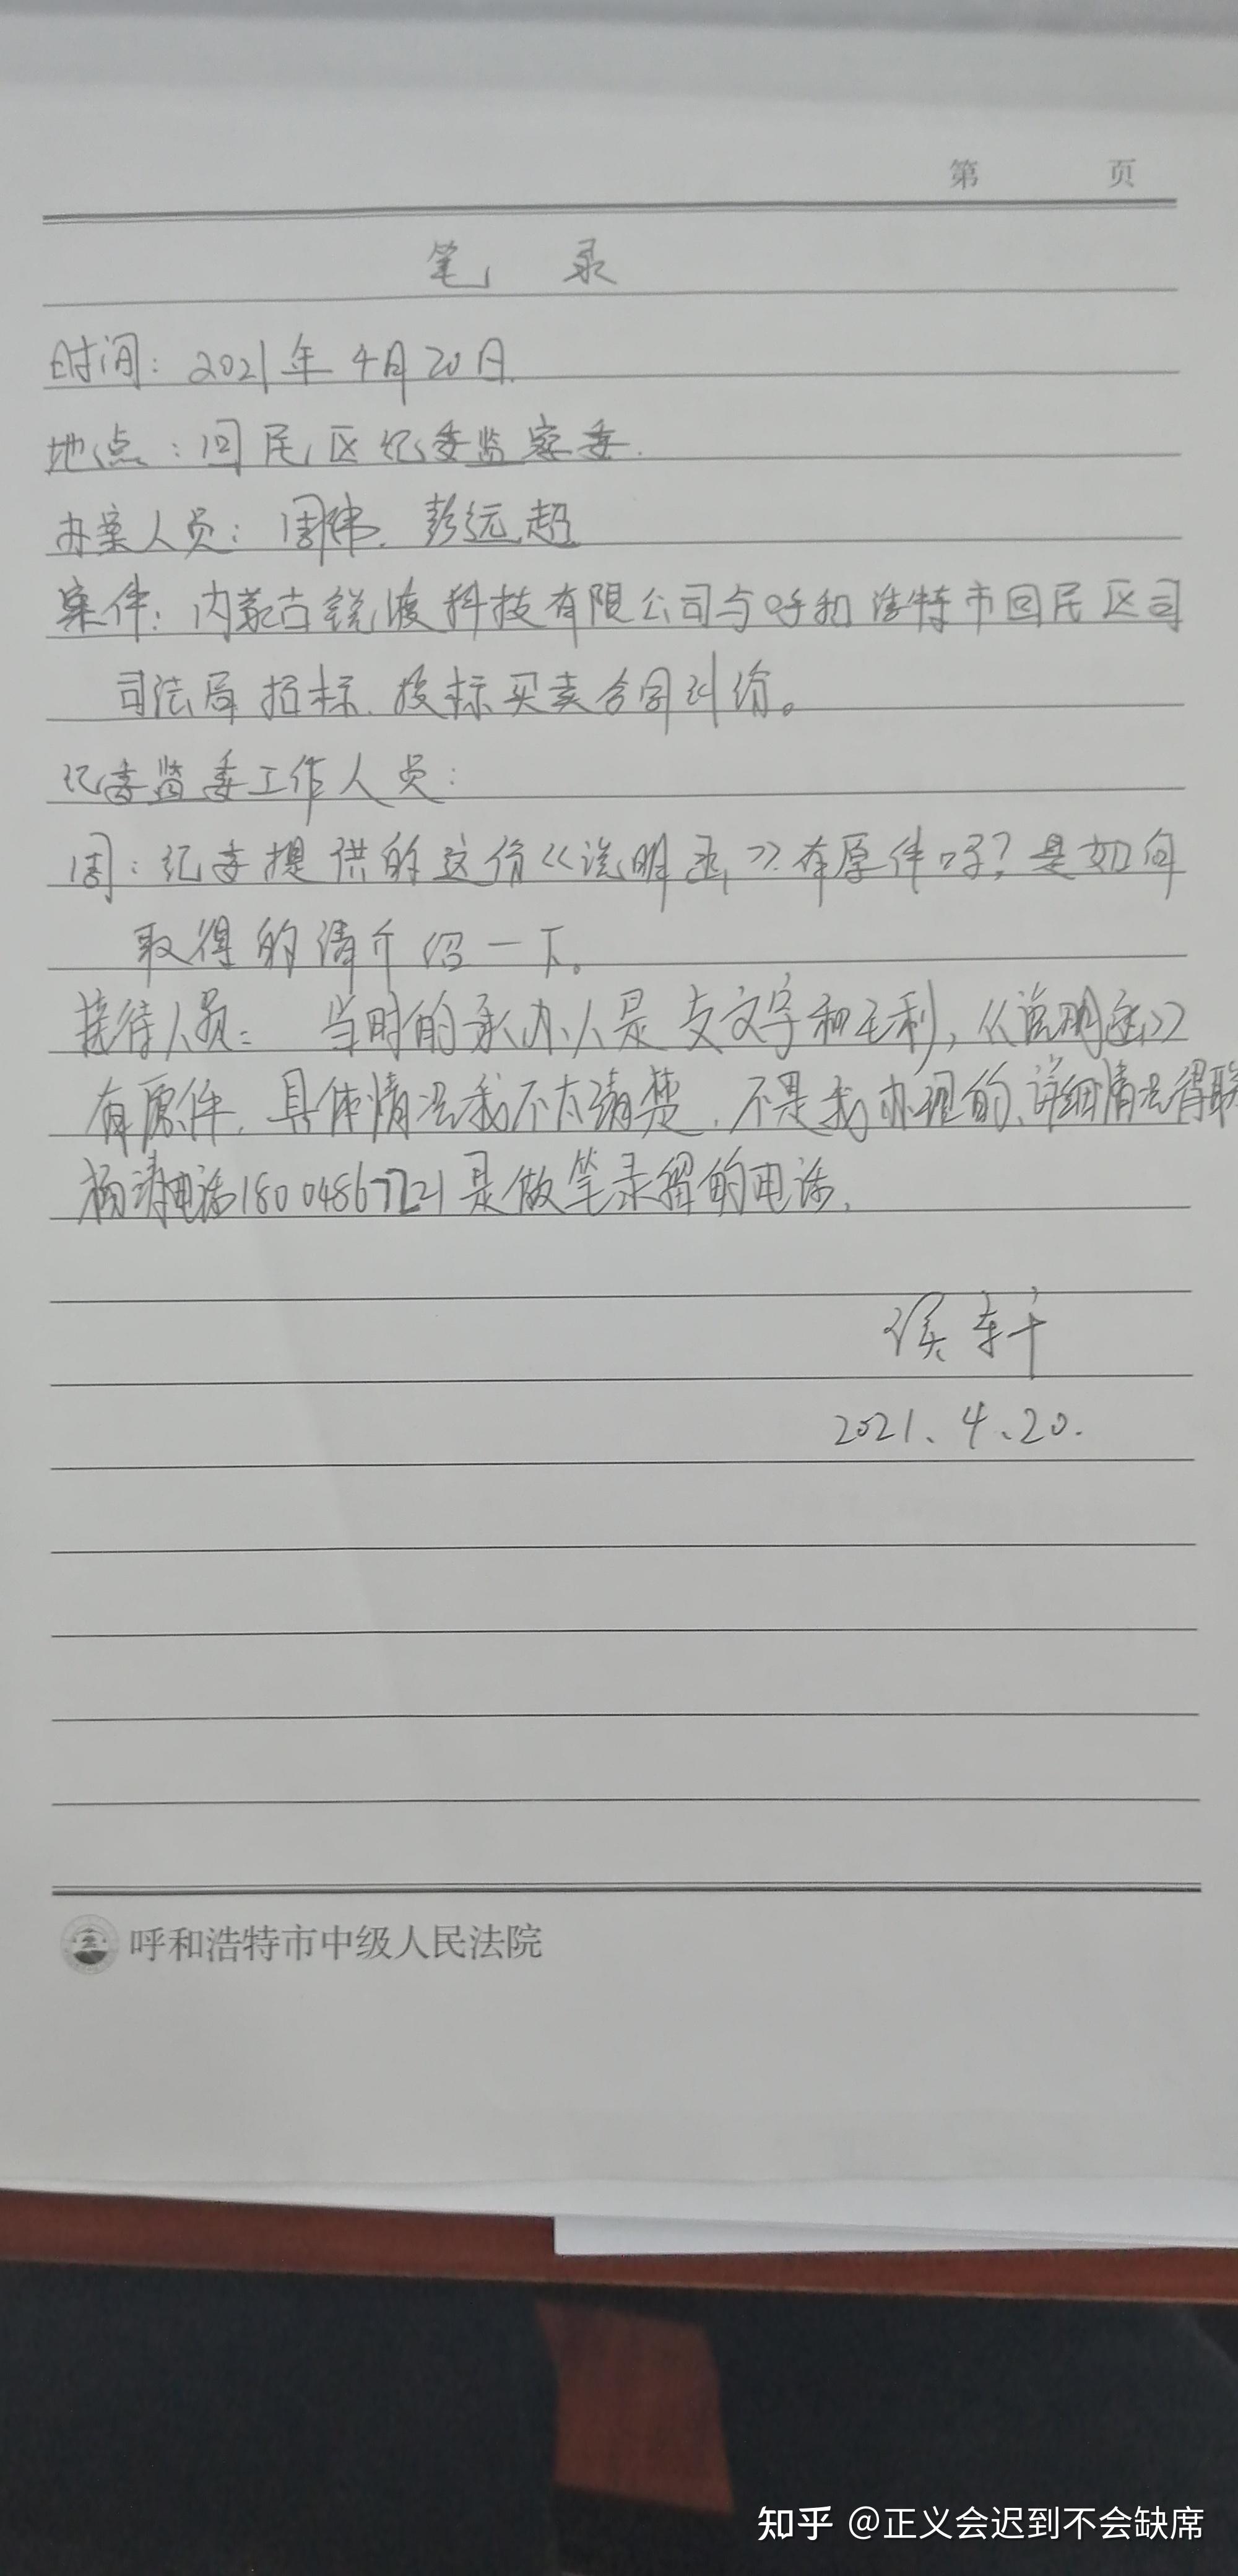 第 页
笔 录
时间：2021年4月20日.
地点：回民区纪委监察委.
办案人员：周伟、彭远超
案件：内蒙古锐渡科技有限公司与呼和浩特市回民区司
司法局招标、投标买卖合同纠纷。
纪委监委工作人员：
周：纪委提供的这份《说明函》有原件吗？是如何
取得的请介绍一下。
接待人员： 当时的承办人是 文字和毛利，《说明函》
有原件，具体情况我不太清楚，不是我办理的、详细情况得联
杨 电话18004867721是做笔录留的电话.
侯轩
2021、4、20.
呼和浩特市中级人民法院
知乎 @正义会迟到不会缺席